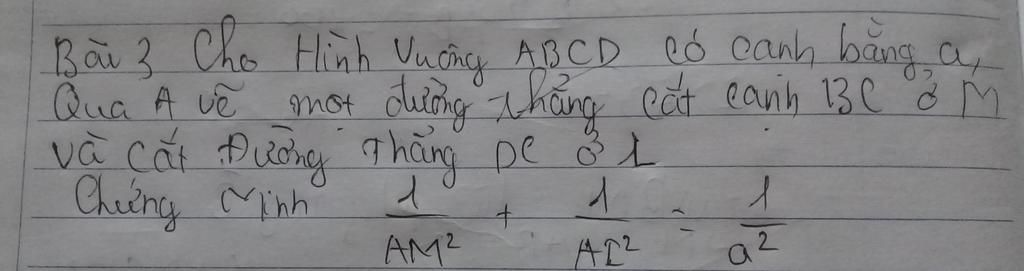 Bài 3 Cho Hình Vuông ABCD có cạnh bằng a,
Qua A vẽ một đường thẳng cắt cạnh BC ở M
và cắt Đường Thẳng DC ở I
Chứng Minh 1/AM² + 1/AI² = 1/a²